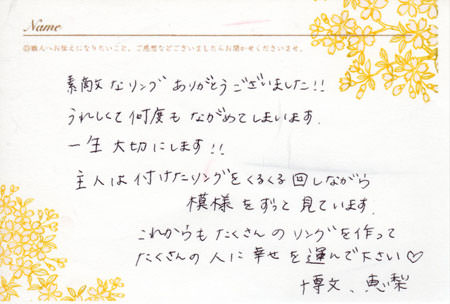 Name
◎職人へお伝えになりたいこと、ご感想などございましたらお聞かせくださいませ。
素敵なリングありがとうございました!!
うれしくて何度もながめてしまいます.
一生大切にします!!
主人は付けたリングをくるくる回しながら
模様をずっと見ています.
これからもたくさんのリングを作って
たくさんの人に幸せを運んで下さい♡
博文、恵梨